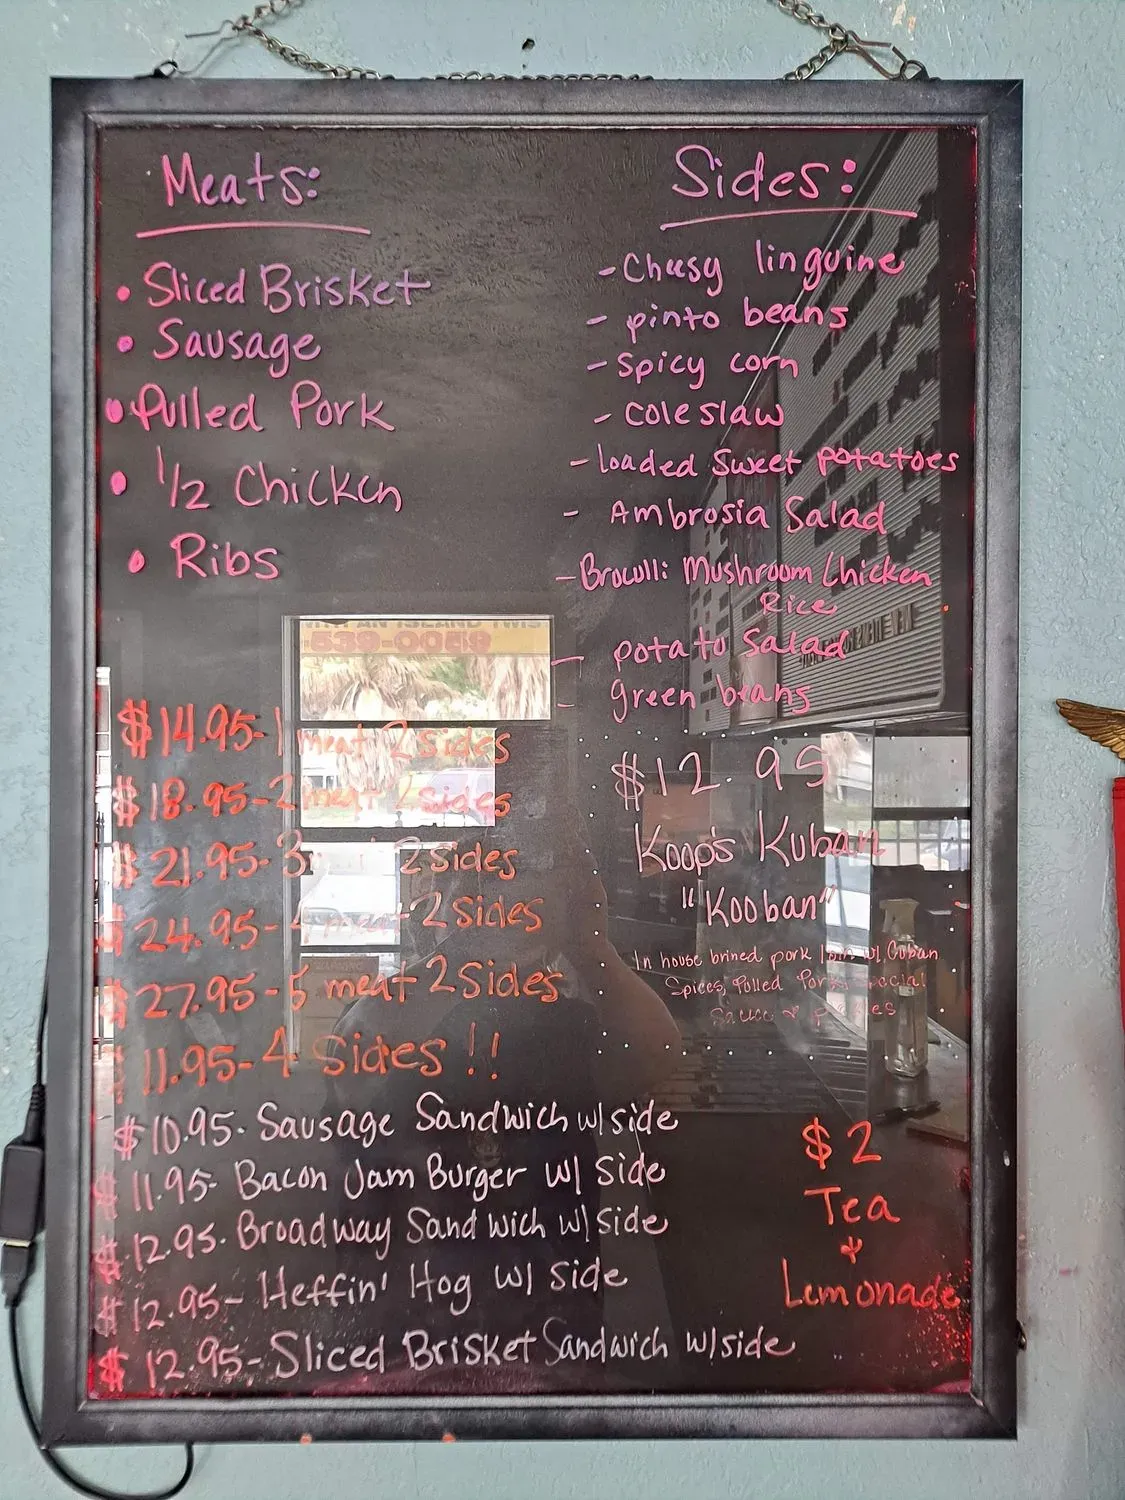 Meats:
• Sliced Brisket
• Sausage
• Pulled Pork
• 1/2 Chicken
• Ribs
Sides:
- Cheesy linguine
- pinto beans
- Spicy corn
- Coleslaw
- loaded Sweet potatoes
- Ambrosia Salad
- Brocolli Mushroom Chicken
Rice
- potato Salad
- green beans
$14.95- 1 meat 2 sides
$18.95-2 meat 2 sides
$21.95-3 2 sides
$24.95-4 meat 2 sides
$27.95-5 meat 2 sides
$11.95-4 Sides!!
$10.95- Sausage Sandwich w/side
$11.95- Bacon Jam Burger w/ side
$12.95- Broadway Sandwich w/side
$12.95- Heffin' Hog w/ side
$12.95- Sliced Brisket Sandwich w/side
$12.95
Koop's Kuban
"Kooban"
In house brined pork loin w/ Cuban
Spices, Pulled Pork, special
Sauce & pickles
$2
Tea
&
Lemonade
AN ISLAND TWIS
539-0059